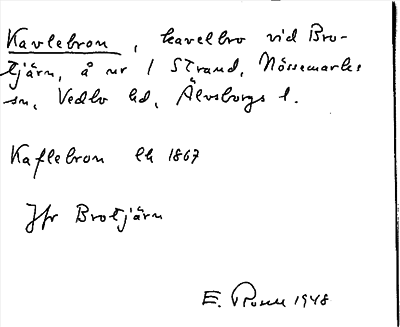 Kavlebron, kavelbro vid Bro-
tjärn, å nr 1 Strand, Nössemarks
sn, Vedbo hd, Älvsborgs l.
Kaflebron lk 1867
Jfr Brotjärn
E. 1948